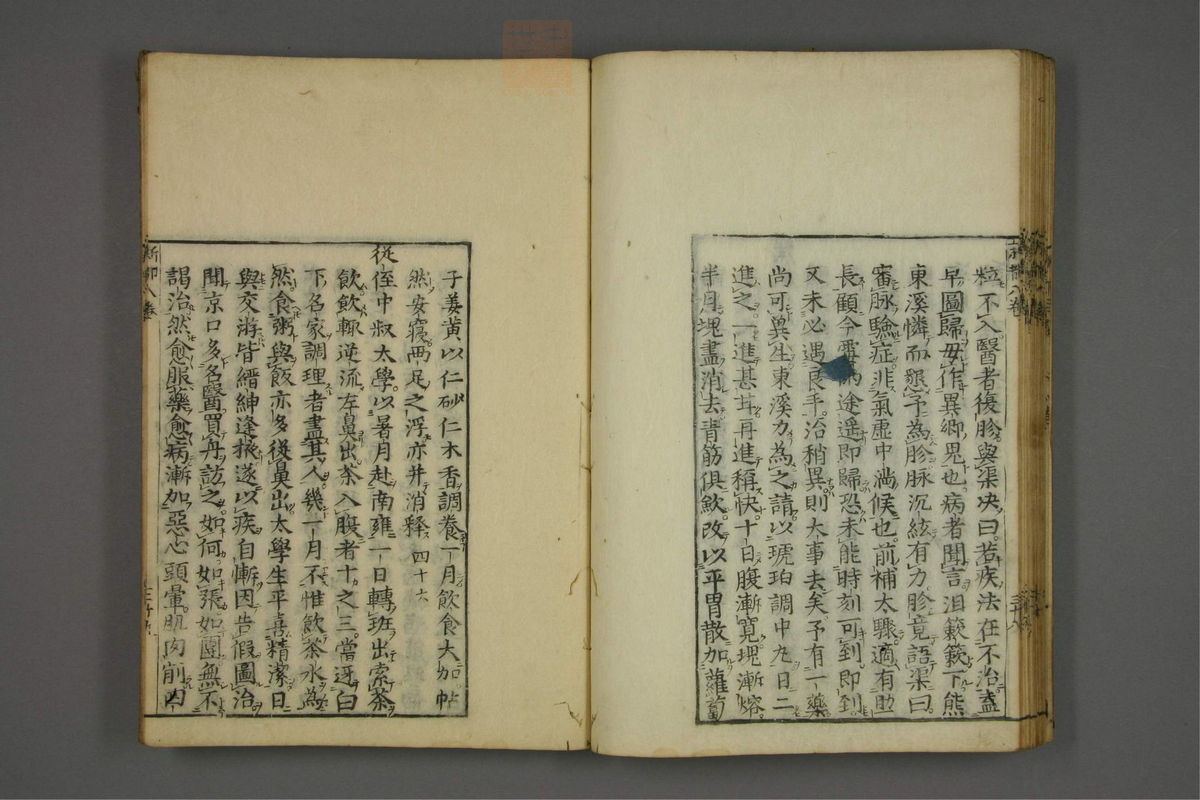 粒不入醫者復胗與渠决曰若疾法在不治盍
早圖歸毋作異鄉鬼也病者聞言泪簌簌下熊
東溪憐而懇予為胗脉沉絃有力胗竟語渠曰
審脉驗症非氣虚中満候也前補太驟適有助
長顧今霄途遥即歸恐未能時刻可到即到
又未必遇良手治稍異則大事去矣予有一藥
尚可兾生東溪力為之請以琥珀調中丸日二
進之一進甚甘再進稱快十日腹漸寛塊漸熔
半月塊盡消去青筋俱歛改以平胃散加蘿蔔
子姜黄以仁砂仁木香調養一月飲食大加帖
然安寝兩足之浮亦并消釋 四十六
從侄中叔太學以暑月赴南雍一日轉班出索茶
飲飲輙逆流左鼻出茶入腹者十之三當迓白
下名家調理者盡其人幾一月不惟飲茶水為
然食粥與飯亦多從鼻出太學生平喜精潔日
與交游皆縉紳逢掖遂以疾自慚因告假圖治
聞京口多名醫買舟訪之如何如張如團無不
謁治然愈服藥愈病漸加惡心頭暈肌肉削